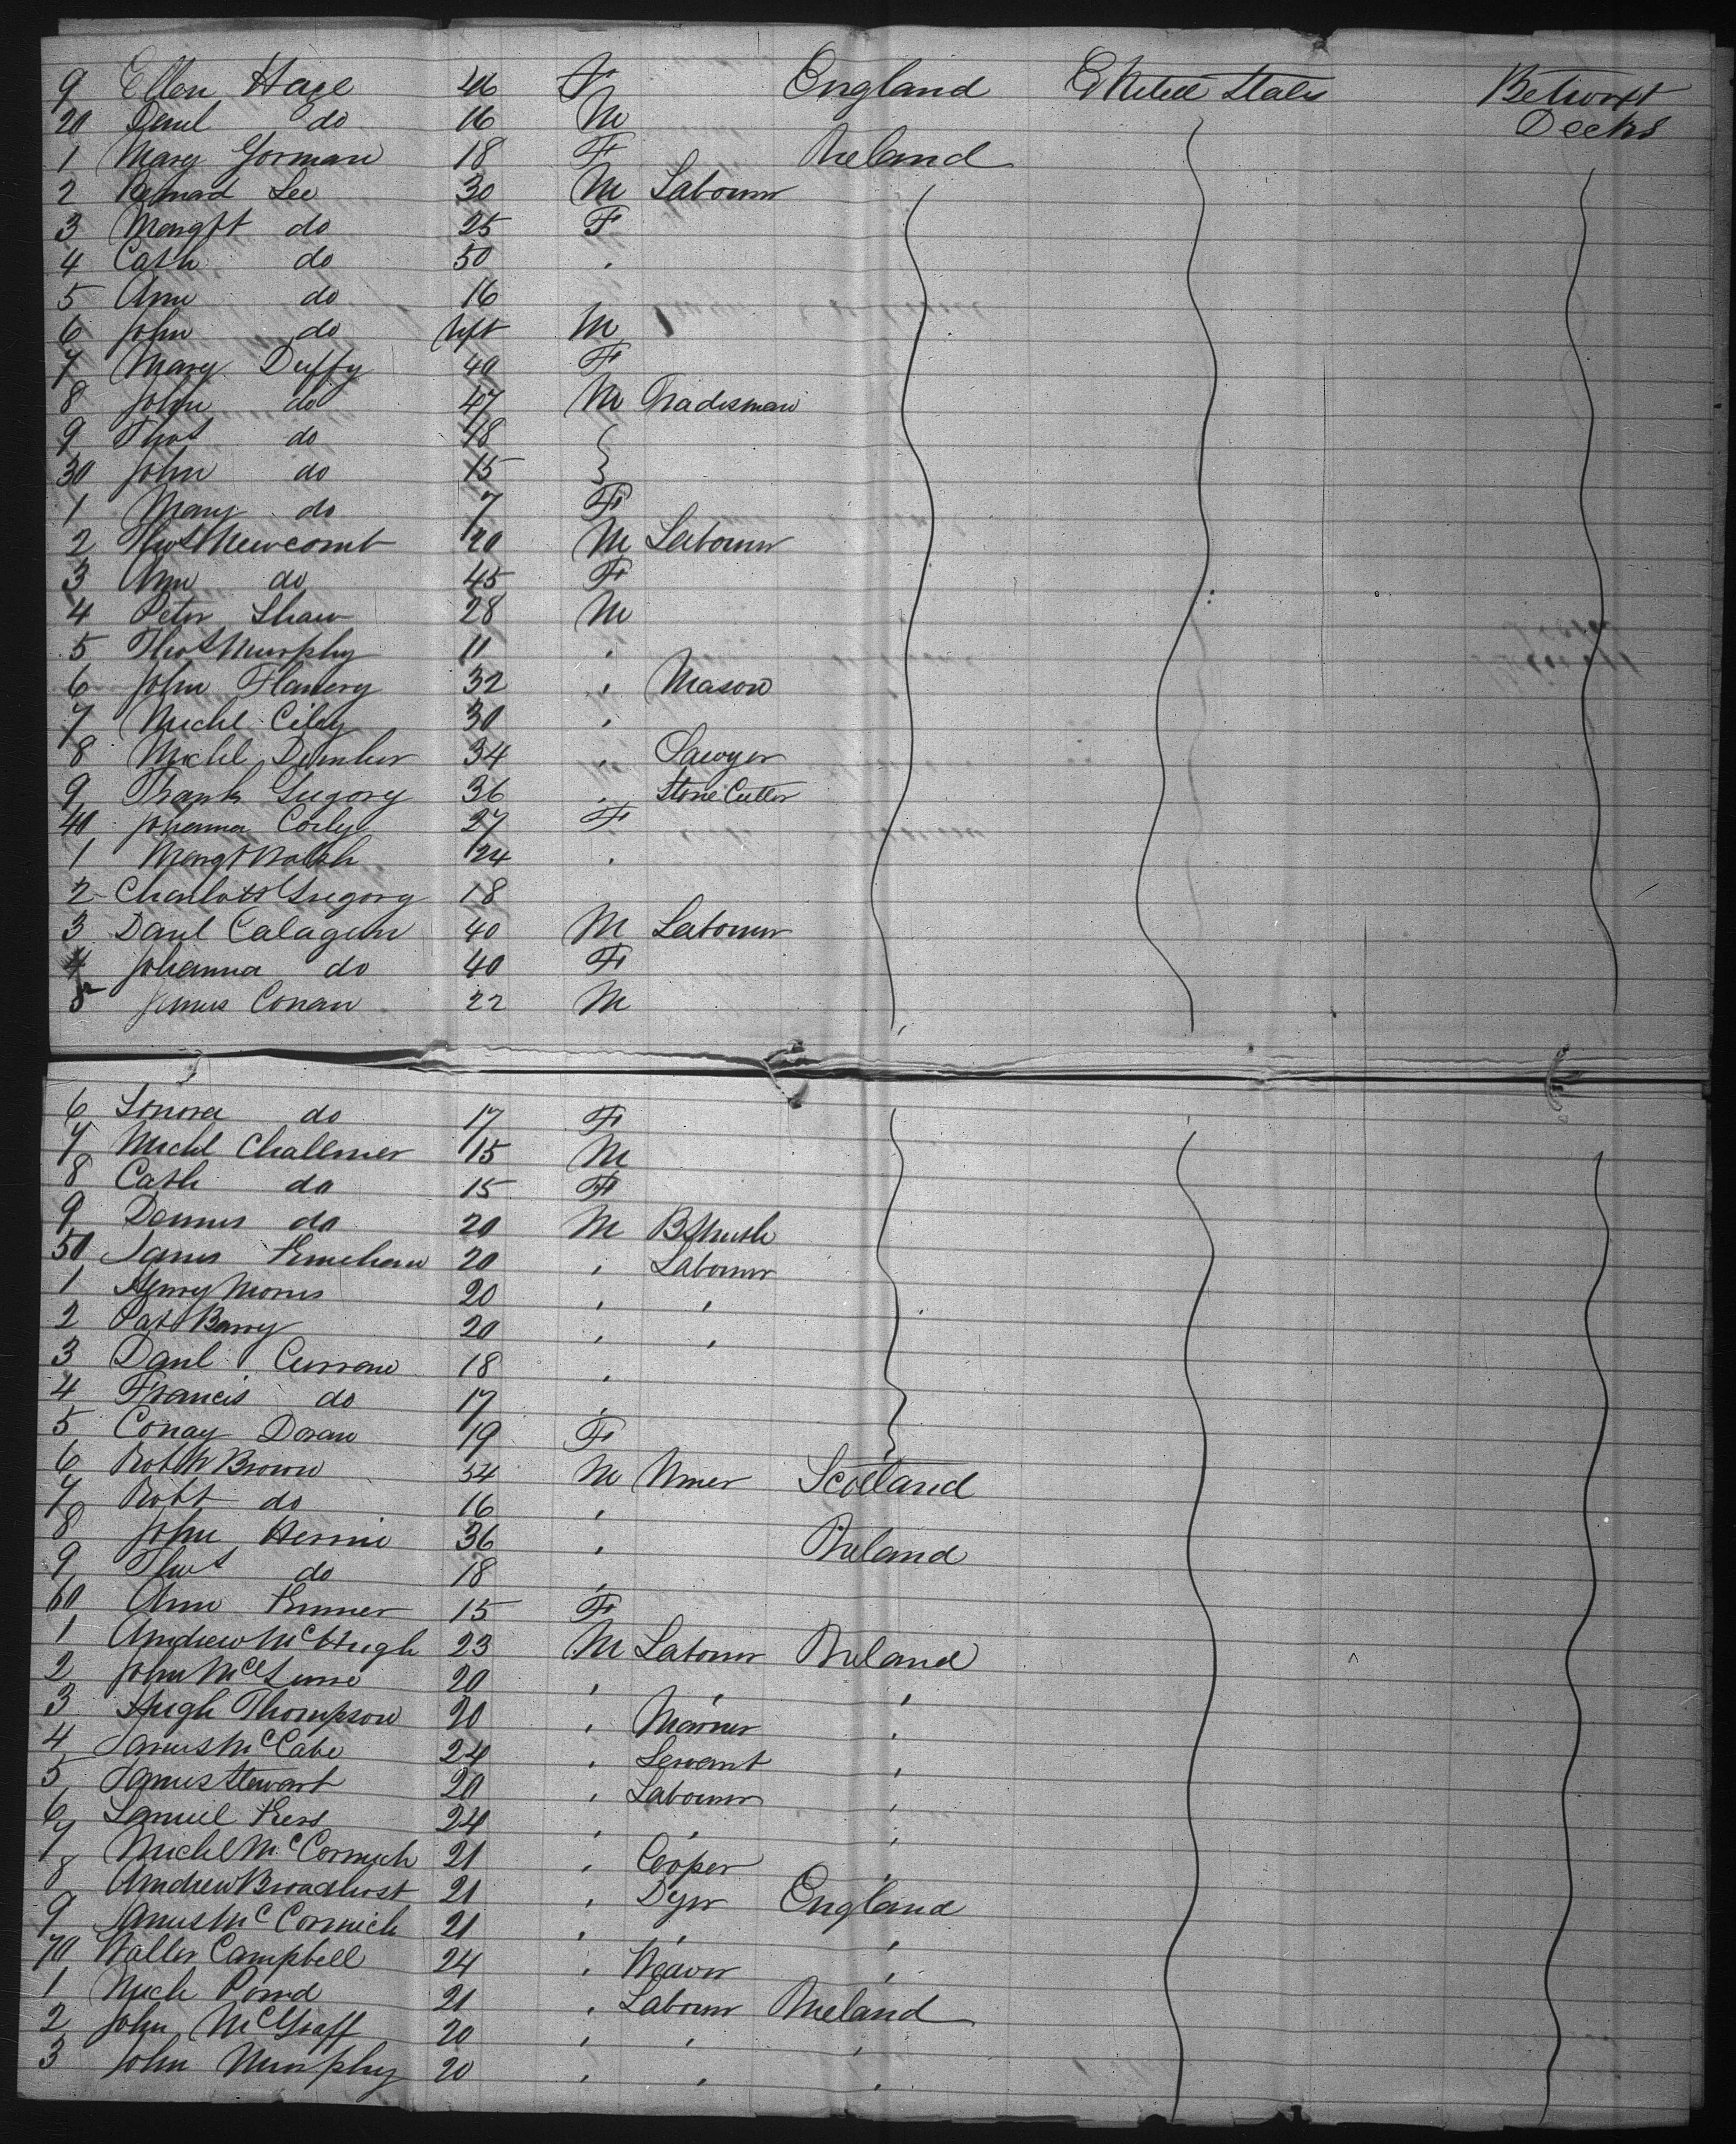 9 Ellen Hage 46 F England United States Betwixt
20 Danl do 16 M Decks
1 Mary Gorman 18 F Ireland
2 Bernard Lee 30 M Labourer
3 Margt do 25 F
4 Cath do 50 "
5 Ann do 16
6 John do Inft M
7 Mary Duffy 40 F
8 John do 47 M Tradesman
9 Thos do 18
30 John do 15
1 Mary do 7 F
2 Thos Newcomb 20 M Labourer
3 Ann do 45 F
4 Peter Shaw 28 M
5 Thos Murphy 11 "
6 John Flanery 32 " Mason
7 Michl 30 "
8 Michl 34 " Sawyer
9 Frank Gregory 36 " Stone Cutter
40 Johanna 27 F
1 Margt Walsh 24 "
2 Charlott Gregory 18
3 Danl Calagun 40 M Labourer
4 Johanna do 40 F
5 James Conan 22 M
6 Honora do 17 F
7 Michl Challener 15 M
8 Cath do 15 F
9 Dennis do 20 M BSmith
50 James 20 " Labourer
1 Henry Morris 20 " "
2 Pat Barry 20 " "
3 Danl Curran 18 "
4 Francis do 17 "
5 Conay Doran 19 F
6 Robt W Brown 34 M Miner Scotland
7 Robt do 16 "
8 John 36 " Ireland
9 Thos do 18 "
60 Ann 15 F
1 Andrew McHugh 23 M Labourer Ireland
2 John 20 " " "
3 Hugh Thompson 20 " Mariner "
4 James McCabe 24 " Servant "
5 James Stewart 20 " Labourer "
6 Samuel 24 " " "
7 Michl McCormick 21 " Cooper "
8 Andrew Broadhust 21 " Dyer England
9 James McCormick 21 " " "
70 Walter Campbell 24 " Weaver "
1 Mich 21 " Labourer Ireland
2 John McGraff 20 " " "
3 John Murphy 20 " " "